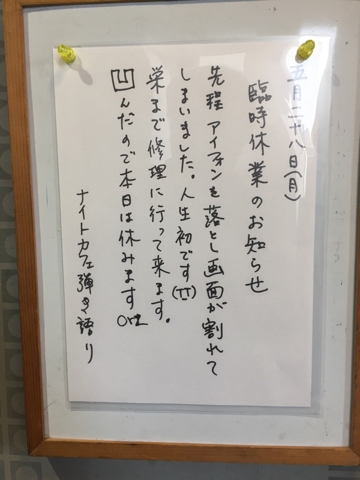 五月二十八日(月)
臨時休業のお知らせ
先程アイフォンを落とし画面が割れて
しまいました。人生初です(TT)
栄まで修理に行って来ます。
凹んだので本日は休みます orz
ナイトカフェ弾き語り